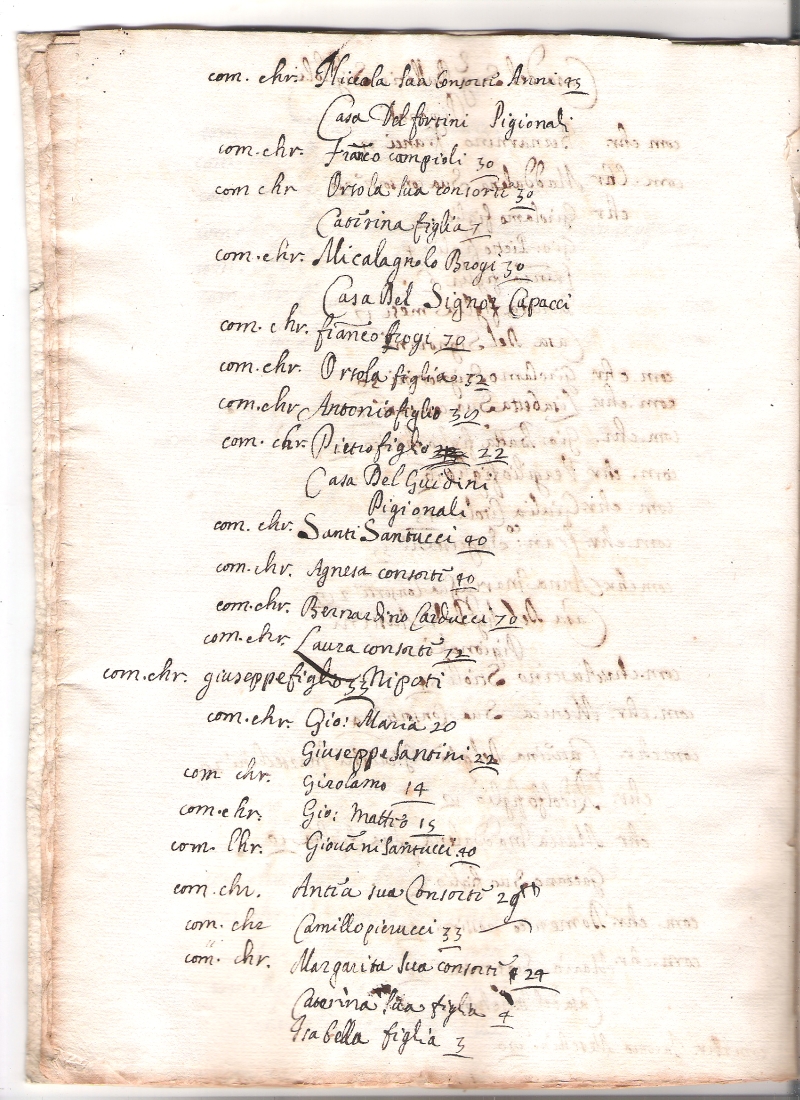 com. chr. Niccola sua Consorte Anni 45
Casa Del fortini Pigionali
com. chr. Franco campioli 30
com chr Orsola sua consorte 30
Caterina figlia 7
com. chr. Micalagnolo Brogi 30
Casa Del Signor Capacci
com. chr. franco Brogi 70
com. chr. Orsola figlia 32
com. chr Antonio figlio 30
com. chr. Pietro figlio 22
Casa Del Guidini
Pigionali
com. chr. Santi Santucci 40
com. chr. Agnesa consorte 40
com. chr. Bernardino Carducci 70
com. chr. Laura consorte 72
com. chr. giuseppe figlio 33 Nipoti
com. chr. Gio: Maria 20
Giuseppe Santini 22
com chr. Girolamo 14
com. chr. Gio: Matteo 15
com. chr. Giovāni Santucci 40
com. chr. Antīa sua Consorte 29
com. chr Camillo pierucci 33
com. chr. Margarita sua consorte 24
Caterina sua figlia 4
Isabella figlia 3